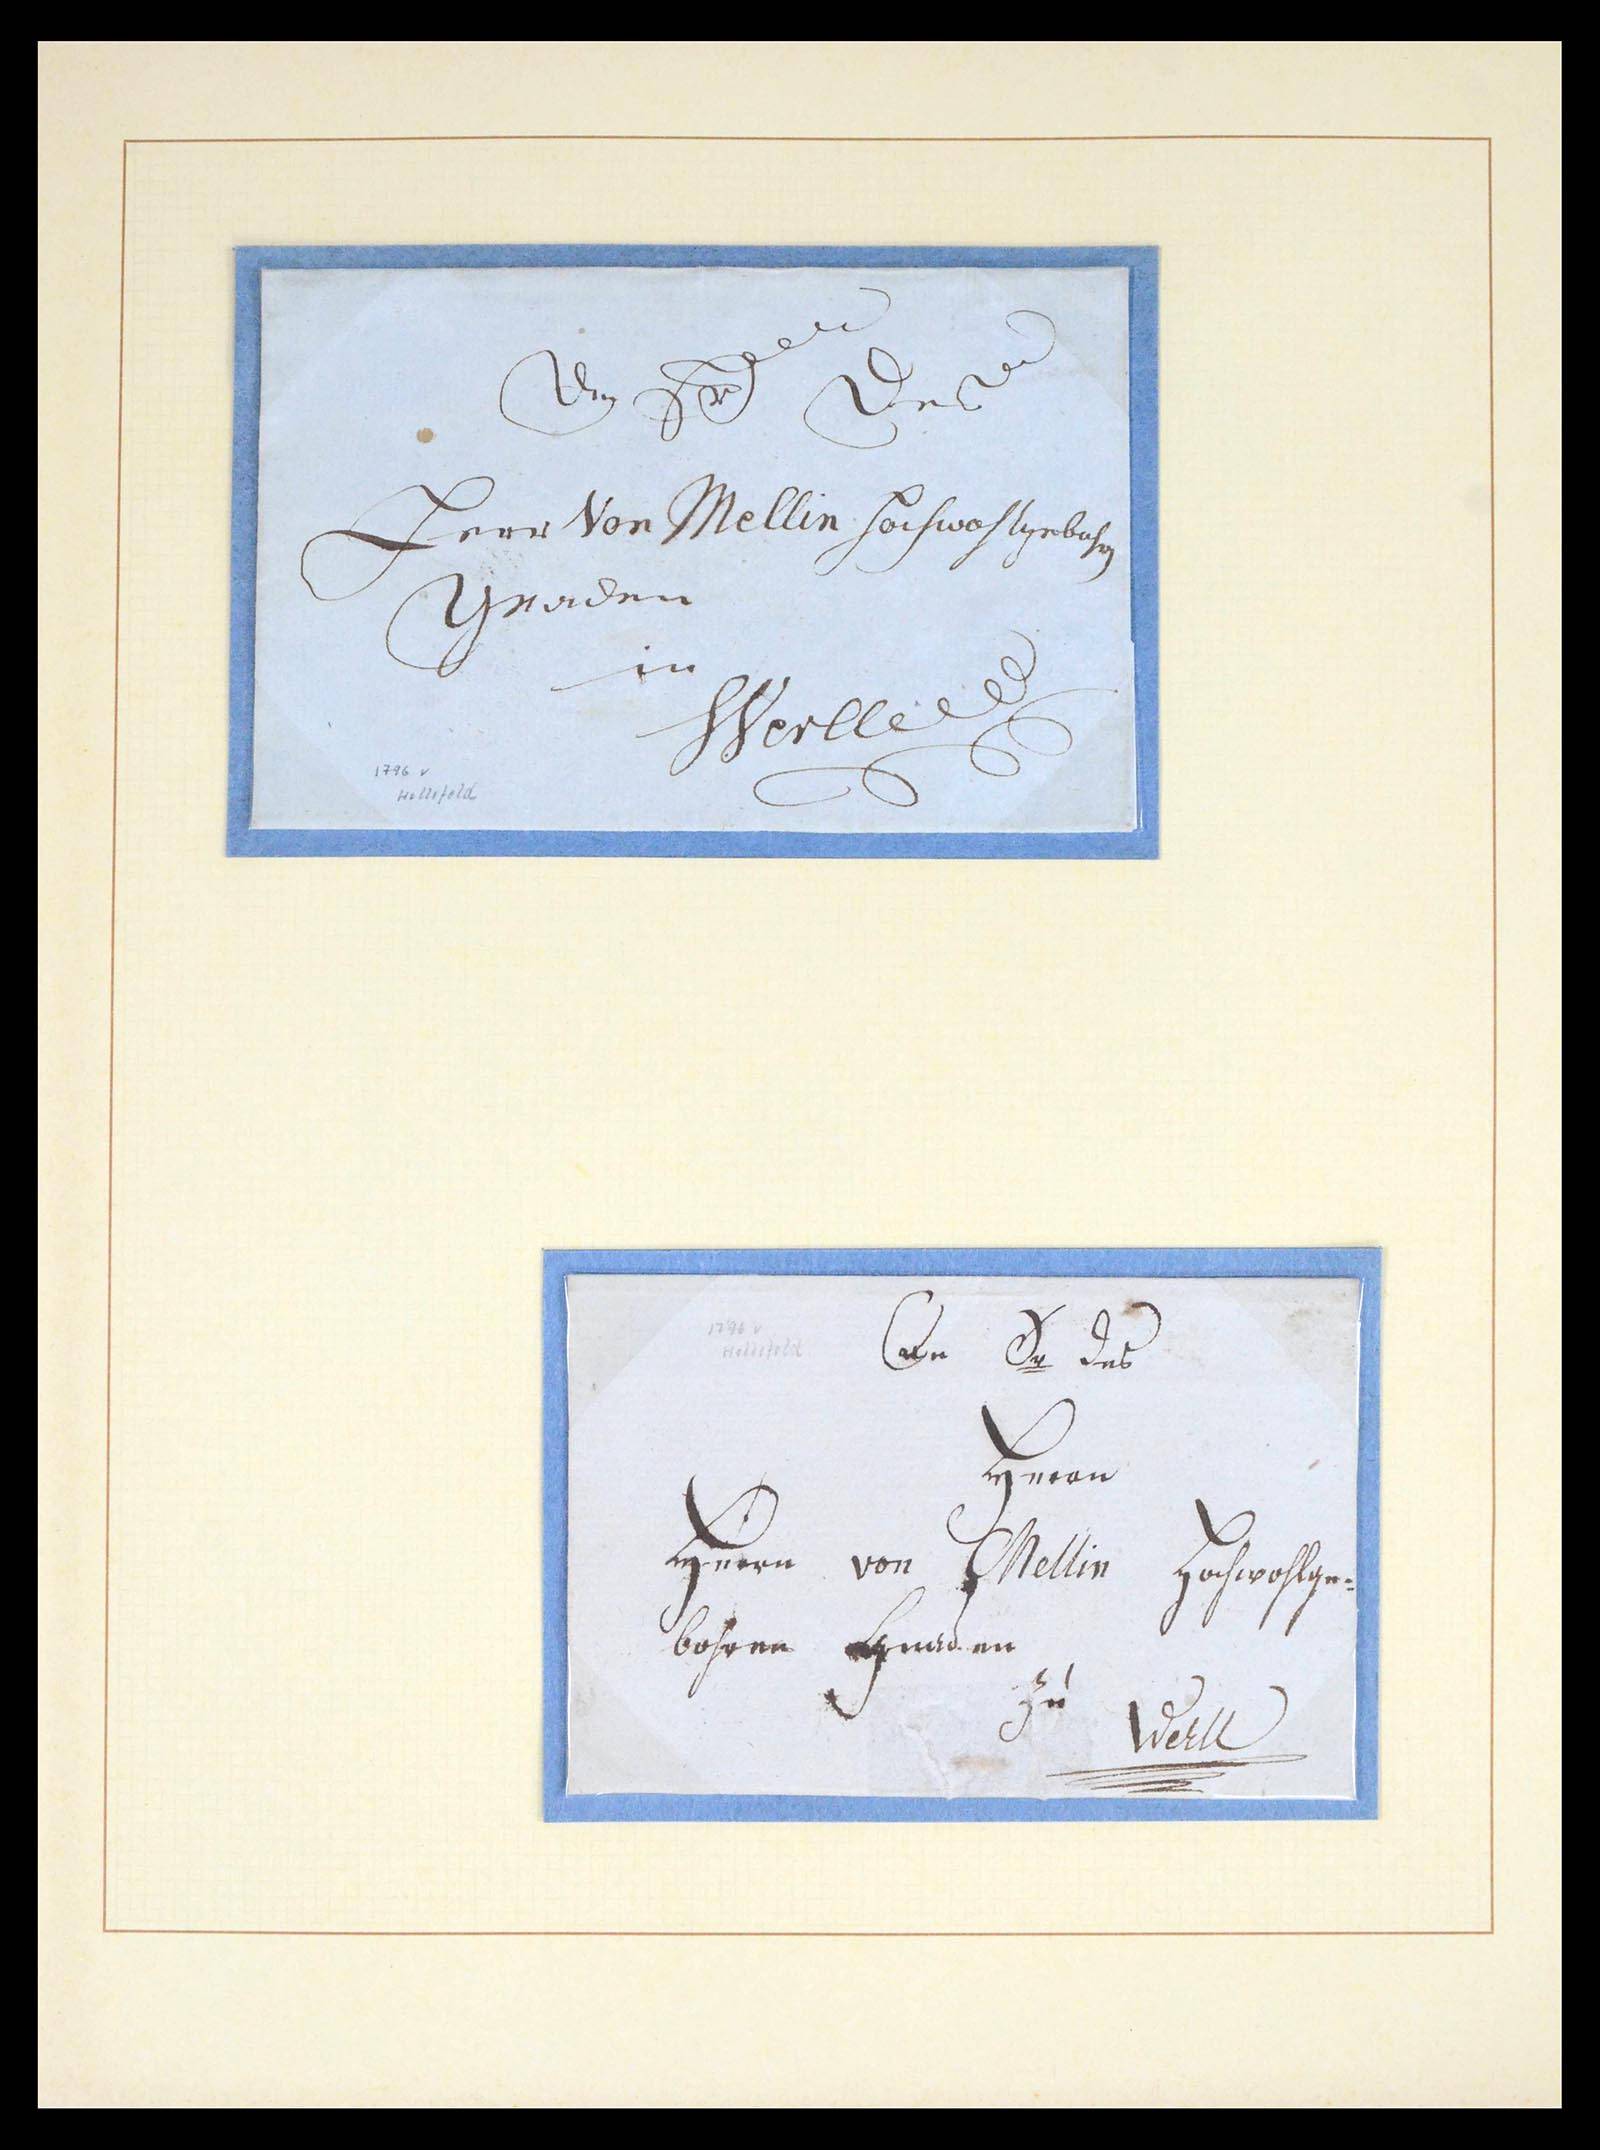 An Sr des
Herr Von Mellin Hochwohlgebohrn
Gnaden
in
Werlle
1796 v
Hellefeld
1796 v
Hellefeld
An Sr des
Herrn
Herrn von Mellin Hochwohlge=
bohren Gnaden
zu
Werll